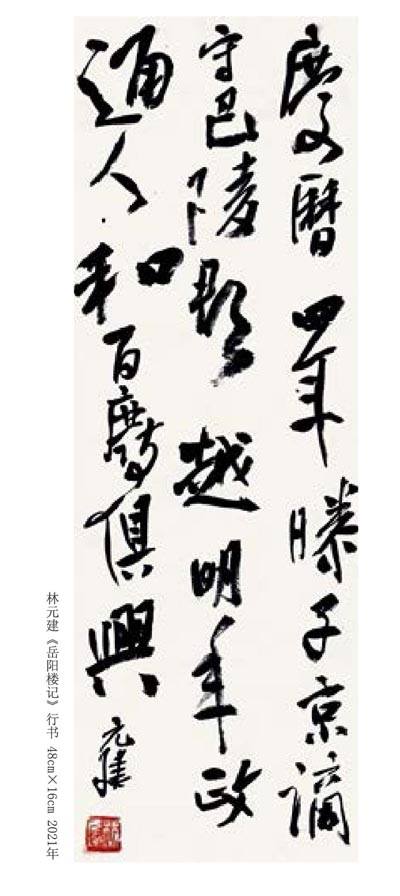 慶曆四年滕子京謫
守巴陵郡越明年政
通人和百廢俱興
元建
林元建《岳阳楼记》行书 48cm×16cm 2021年